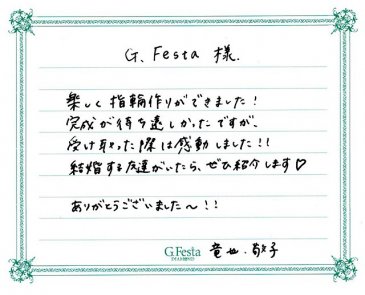 G. Festa 様.
楽しく指輪作りができました!
完成が待ち遠しかったですが、
受け取った際は感動しました!!
結婚する友達がいたら、ぜひ紹介します♡
ありがとうございました〜!!
G.Festa
DIAMOND
竜也.敬子